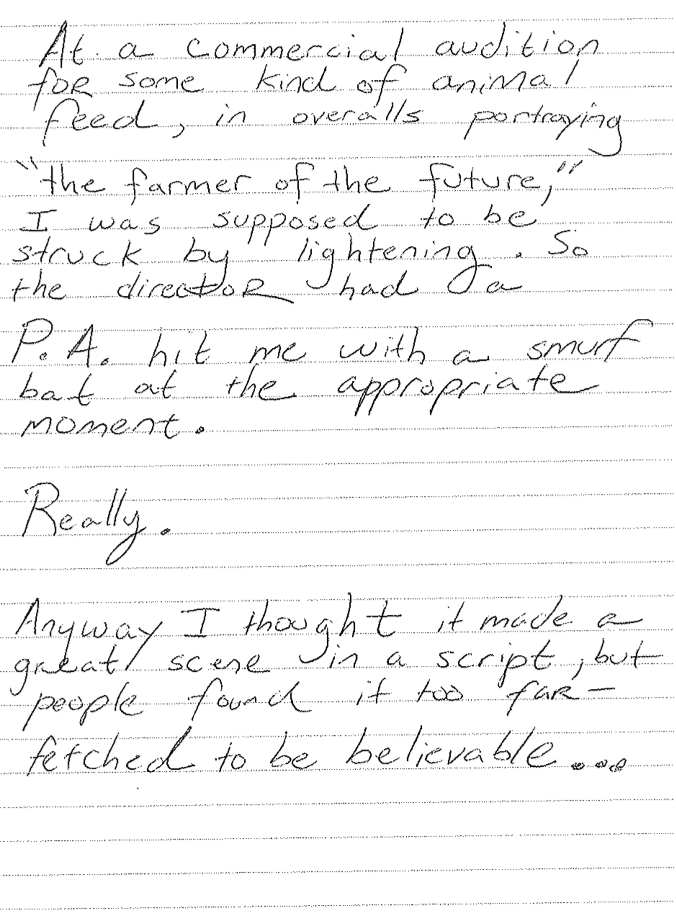 At a commercial audition
for some kind of animal
feed, in overalls portraying
"the farmer of the future,"
I was supposed to be
struck by lightening. So
the director had a
P.A. hit me with a smurf
bat at the appropriate
moment.
Really.
Anyway I thought it made a
great scene in a script, but
people found it too far-
fetched to be believable....